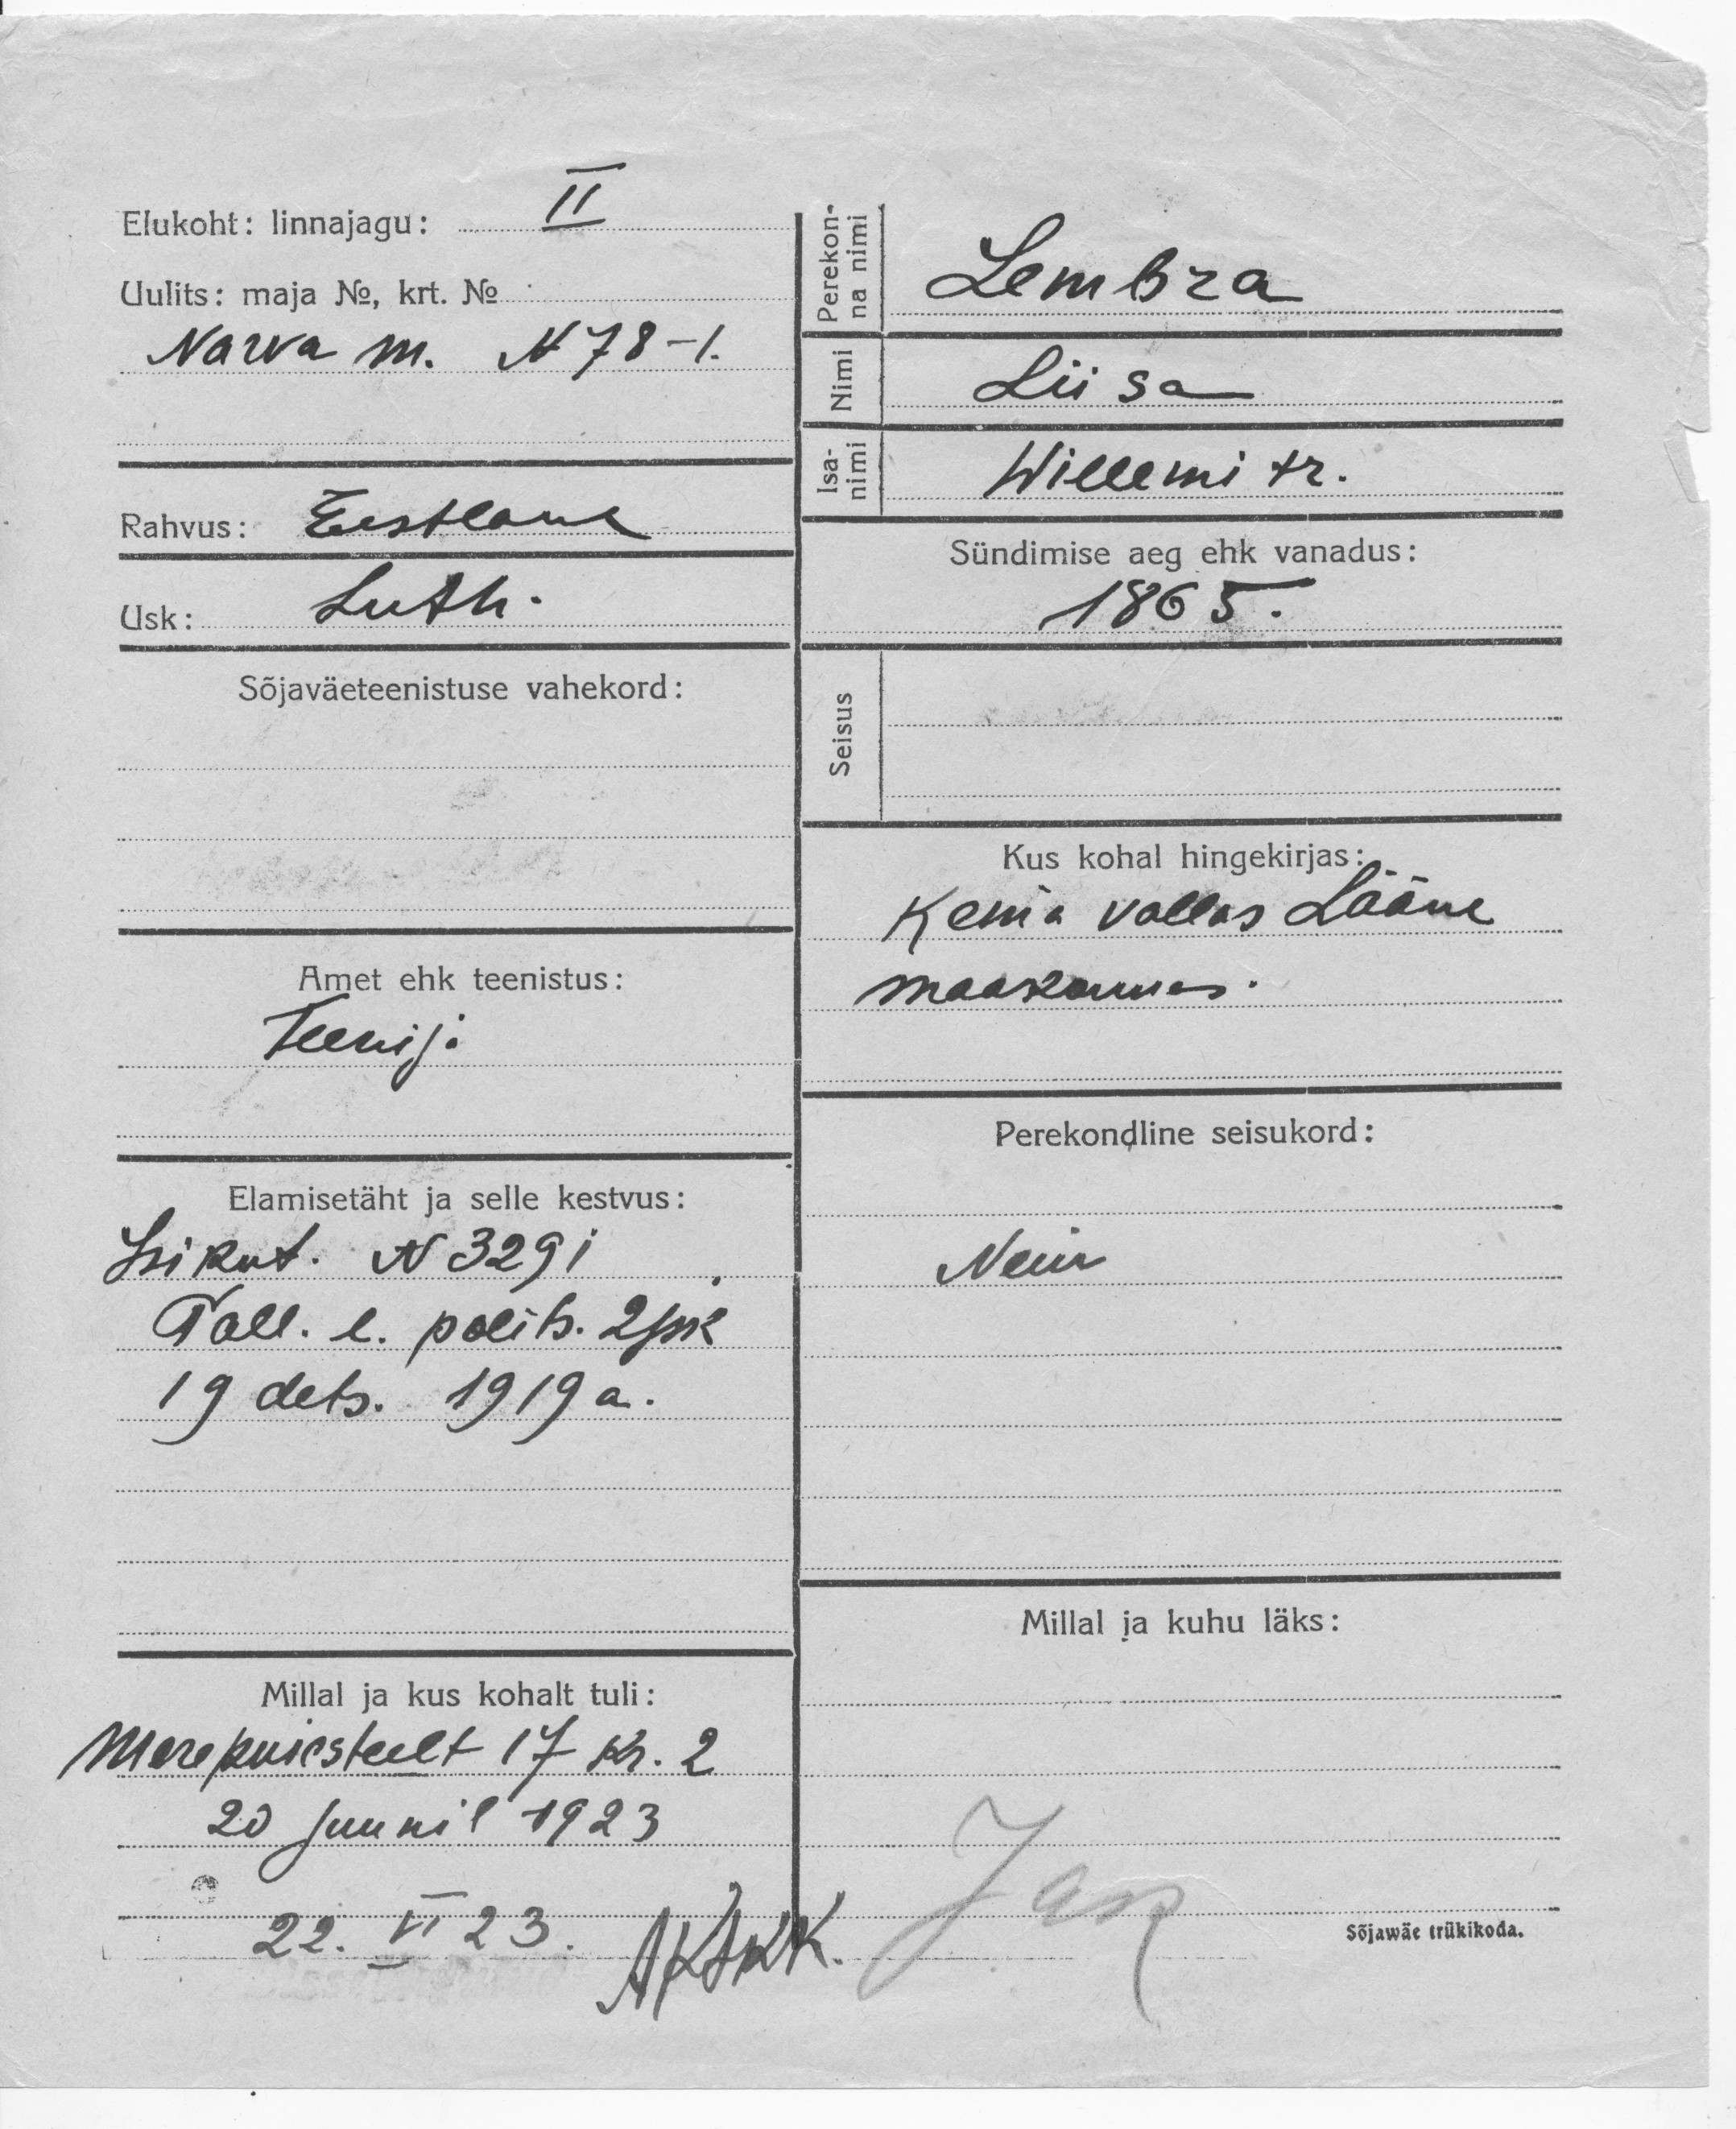 Elukoht: linnajagu: II
Uulits: maja №, krt. №
Narva m. N 78-1.
Rahvus: Eestlane
Usk: Luth.
Sõjaväeteenistuse vahekord:
Amet ehk teenistus:
Teenija
Elamisetäht ja selle kestvus:
Isikut. N 3291
Tall. l. polits. 2 jsk
19 dets. 1919 a.
Millal ja kus kohalt tuli:
Merepuiesteelt 17 kr. 2
20 juunil 1923
22. VI 23.
Perekon-
na nimi
Lembra
Nimi
Liisa
Isa-
nimi
Willemi tr.
Sündimise aeg ehk vanadus:
1865.
Seisus
Kus kohal hingekirjas:
vallas Lääne
maakonnas.
Perekondline seisukord:
Millal ja kuhu läks:
Sõjawäe trükikoda.